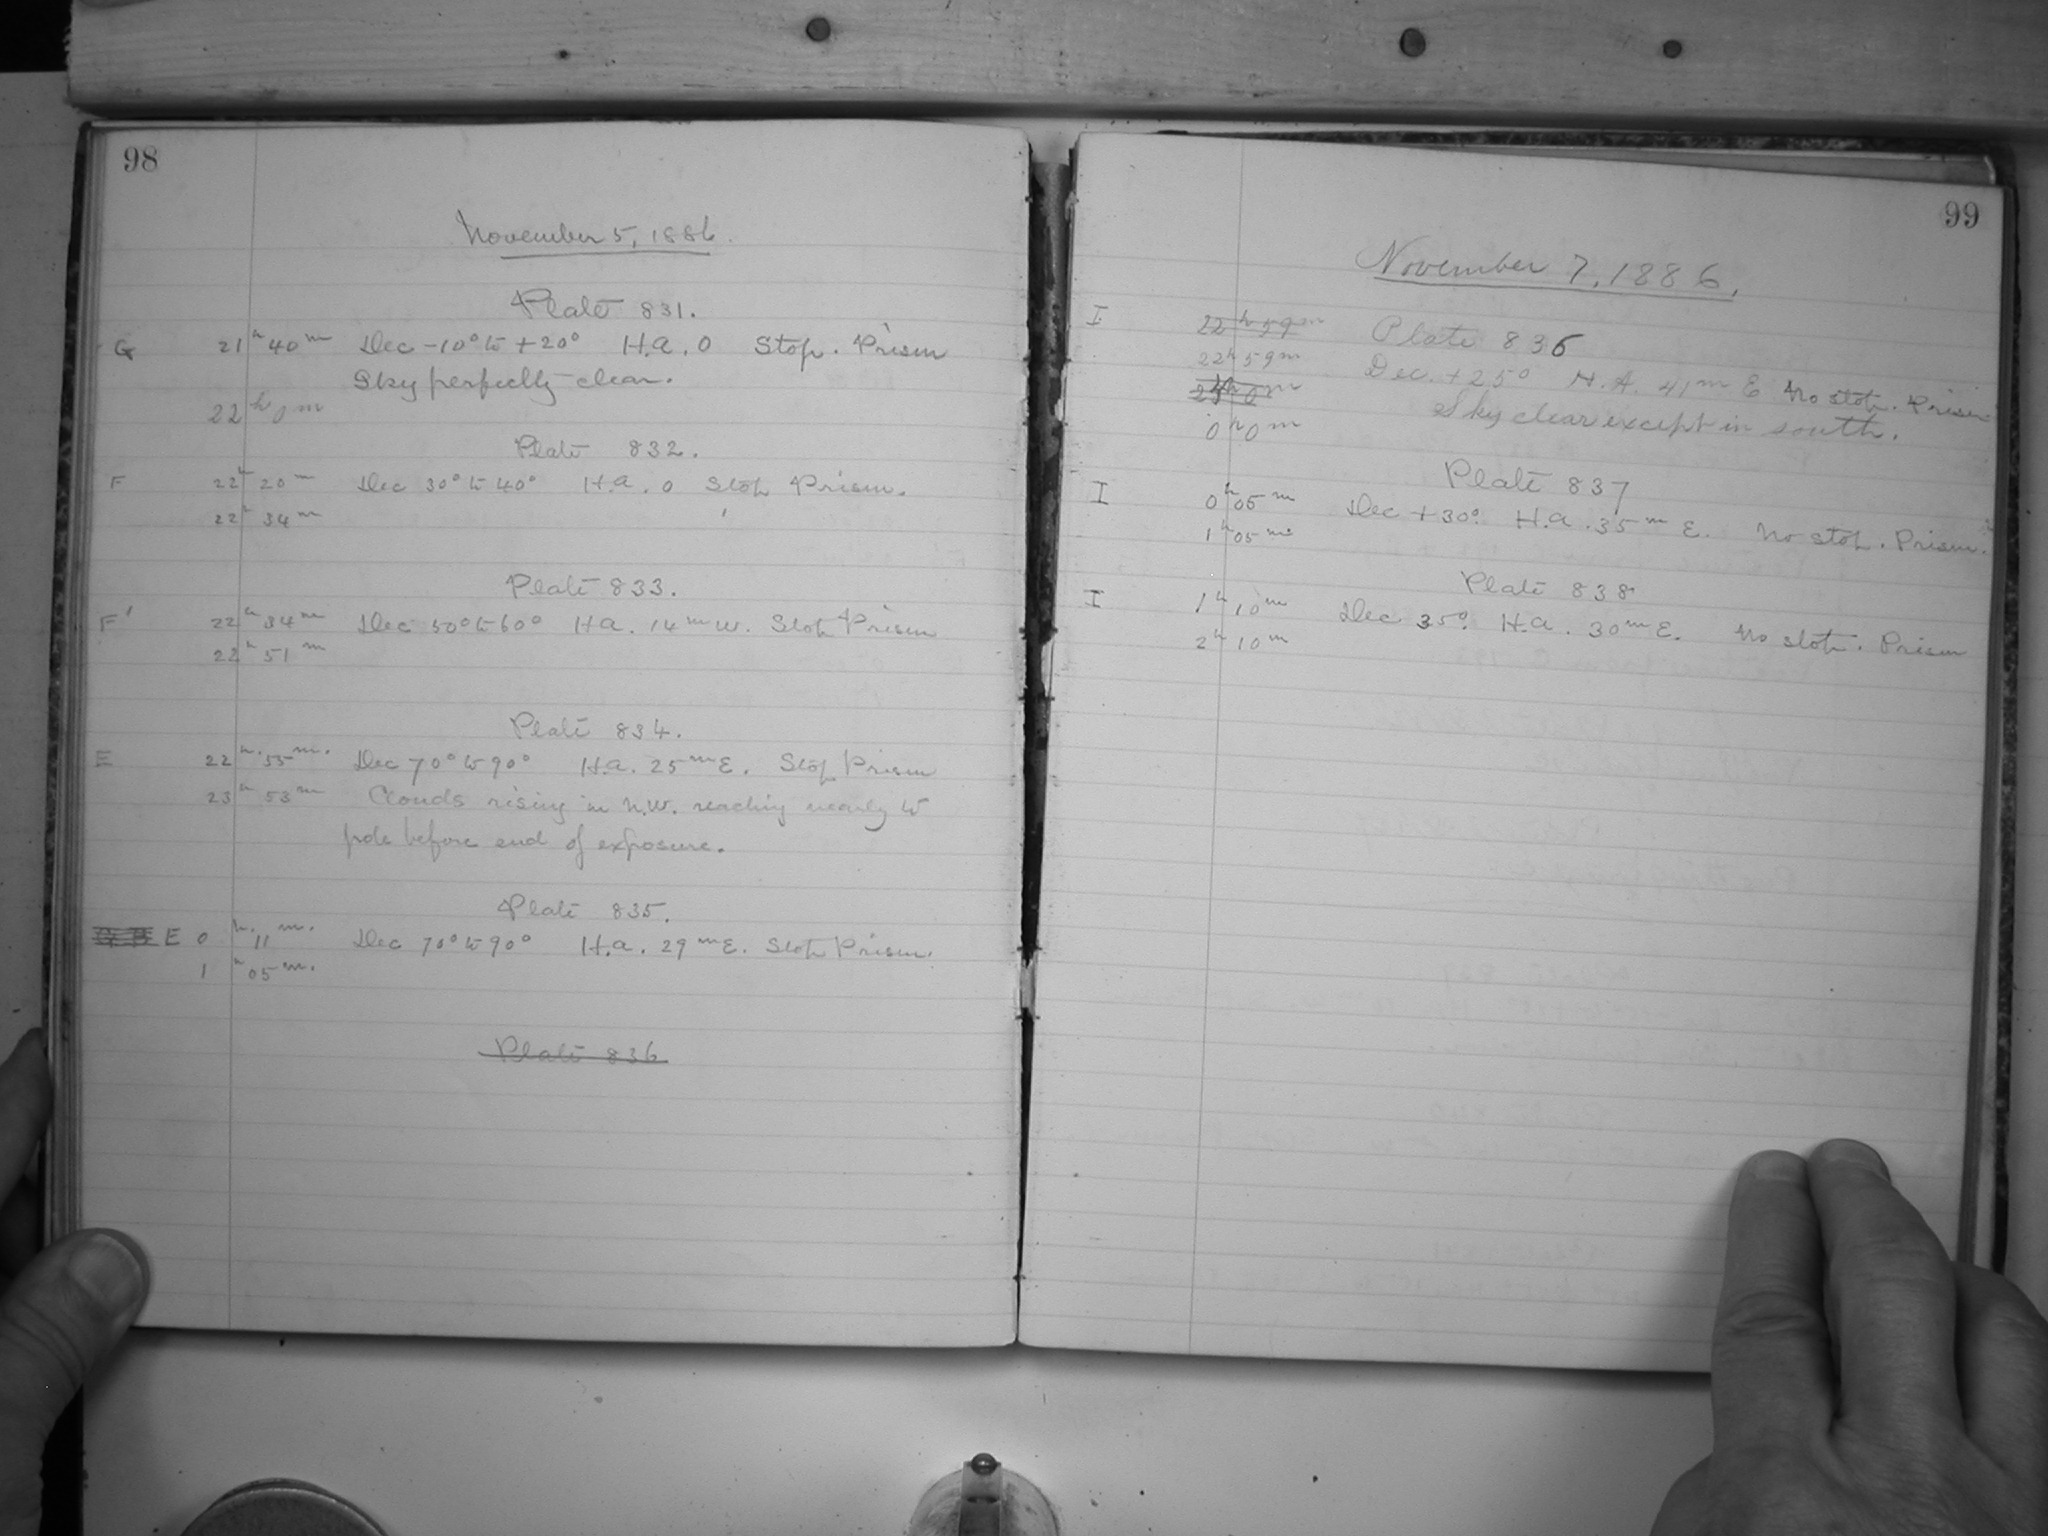 98
November 5, 1886.
Plate 831.
G 21h 40m Dec -10° to +20° H.a. 0 Stop. Prism
Sky perfectly clear.
22h 0m
Plate 832.
F 22h 20m Dec 30° to 40° H.a. 0 Stop Prism.
22h 34m
Plate 833.
F' 22h 34m Dec 50° to 60° H.a. 14m W. Stop Prism
22h 51m
Plate 834.
E 22h. 55m. Dec 70° to 90° H.a. 25m E. Stop Prism
23h 53m Clouds rising in N.W. reaching nearly to
pole before end of exposure.
Plate 835.
E 0h. 11m. Dec 70° to 90° H.a. 29m E. Stop Prism.
1h 05m.
Plate 836
99
November 7, 1886.
I 22h 59m Plate 836
22h 59m Dec. +25° H.A. 41m E No stop. Prism
0h 0m Sky clear except in south.
Plate 837
I 0h 05m Dec +30°. H.a. 35m E. No stop. Prism.
1h 05m.
Plate 838
I 1h 10m Dec 35°. H.a. 30m E. No stop. Prism
2h 10m